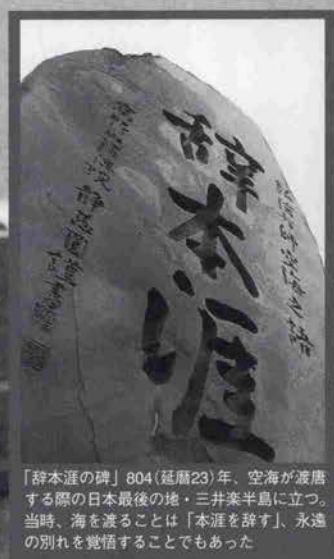 辞本涯
「辞本涯の碑」804(延暦23)年、空海が渡唐
する際の日本最後の地・三井楽半島に立つ。
当時、海を渡ることは「本涯を辞す」、永遠
の別れを覚悟することでもあった